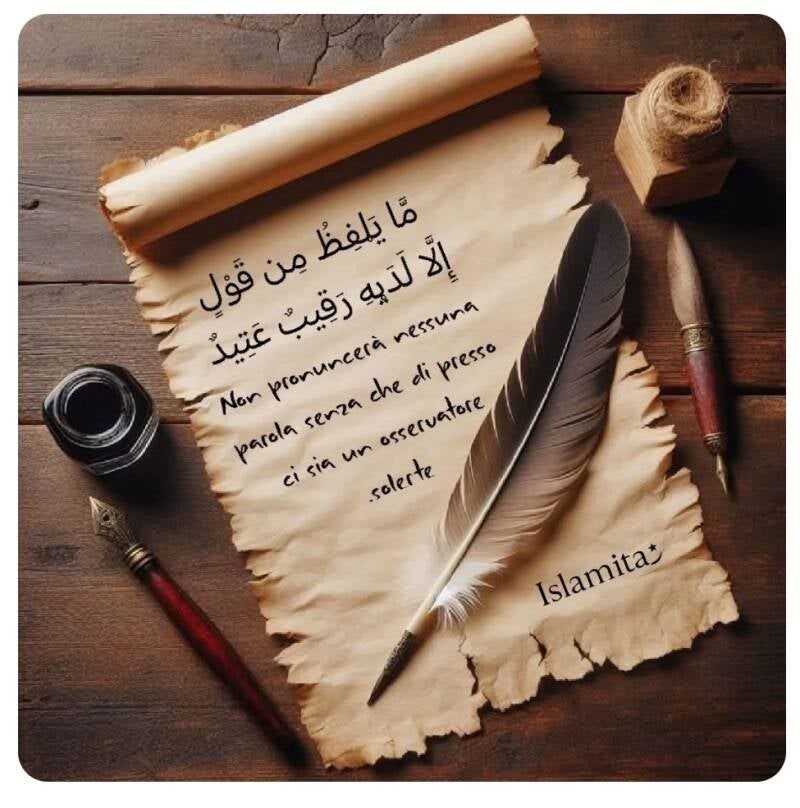 مَّا يَلْفِظُ مِن قَوْلٍ
إِلَّا لَدَيْهِ رَقِيبٌ عَتِيدٌ
Non pronuncerà nessuna
parola senza che di presso
ci sia un osservatore
.solerte
Islamita